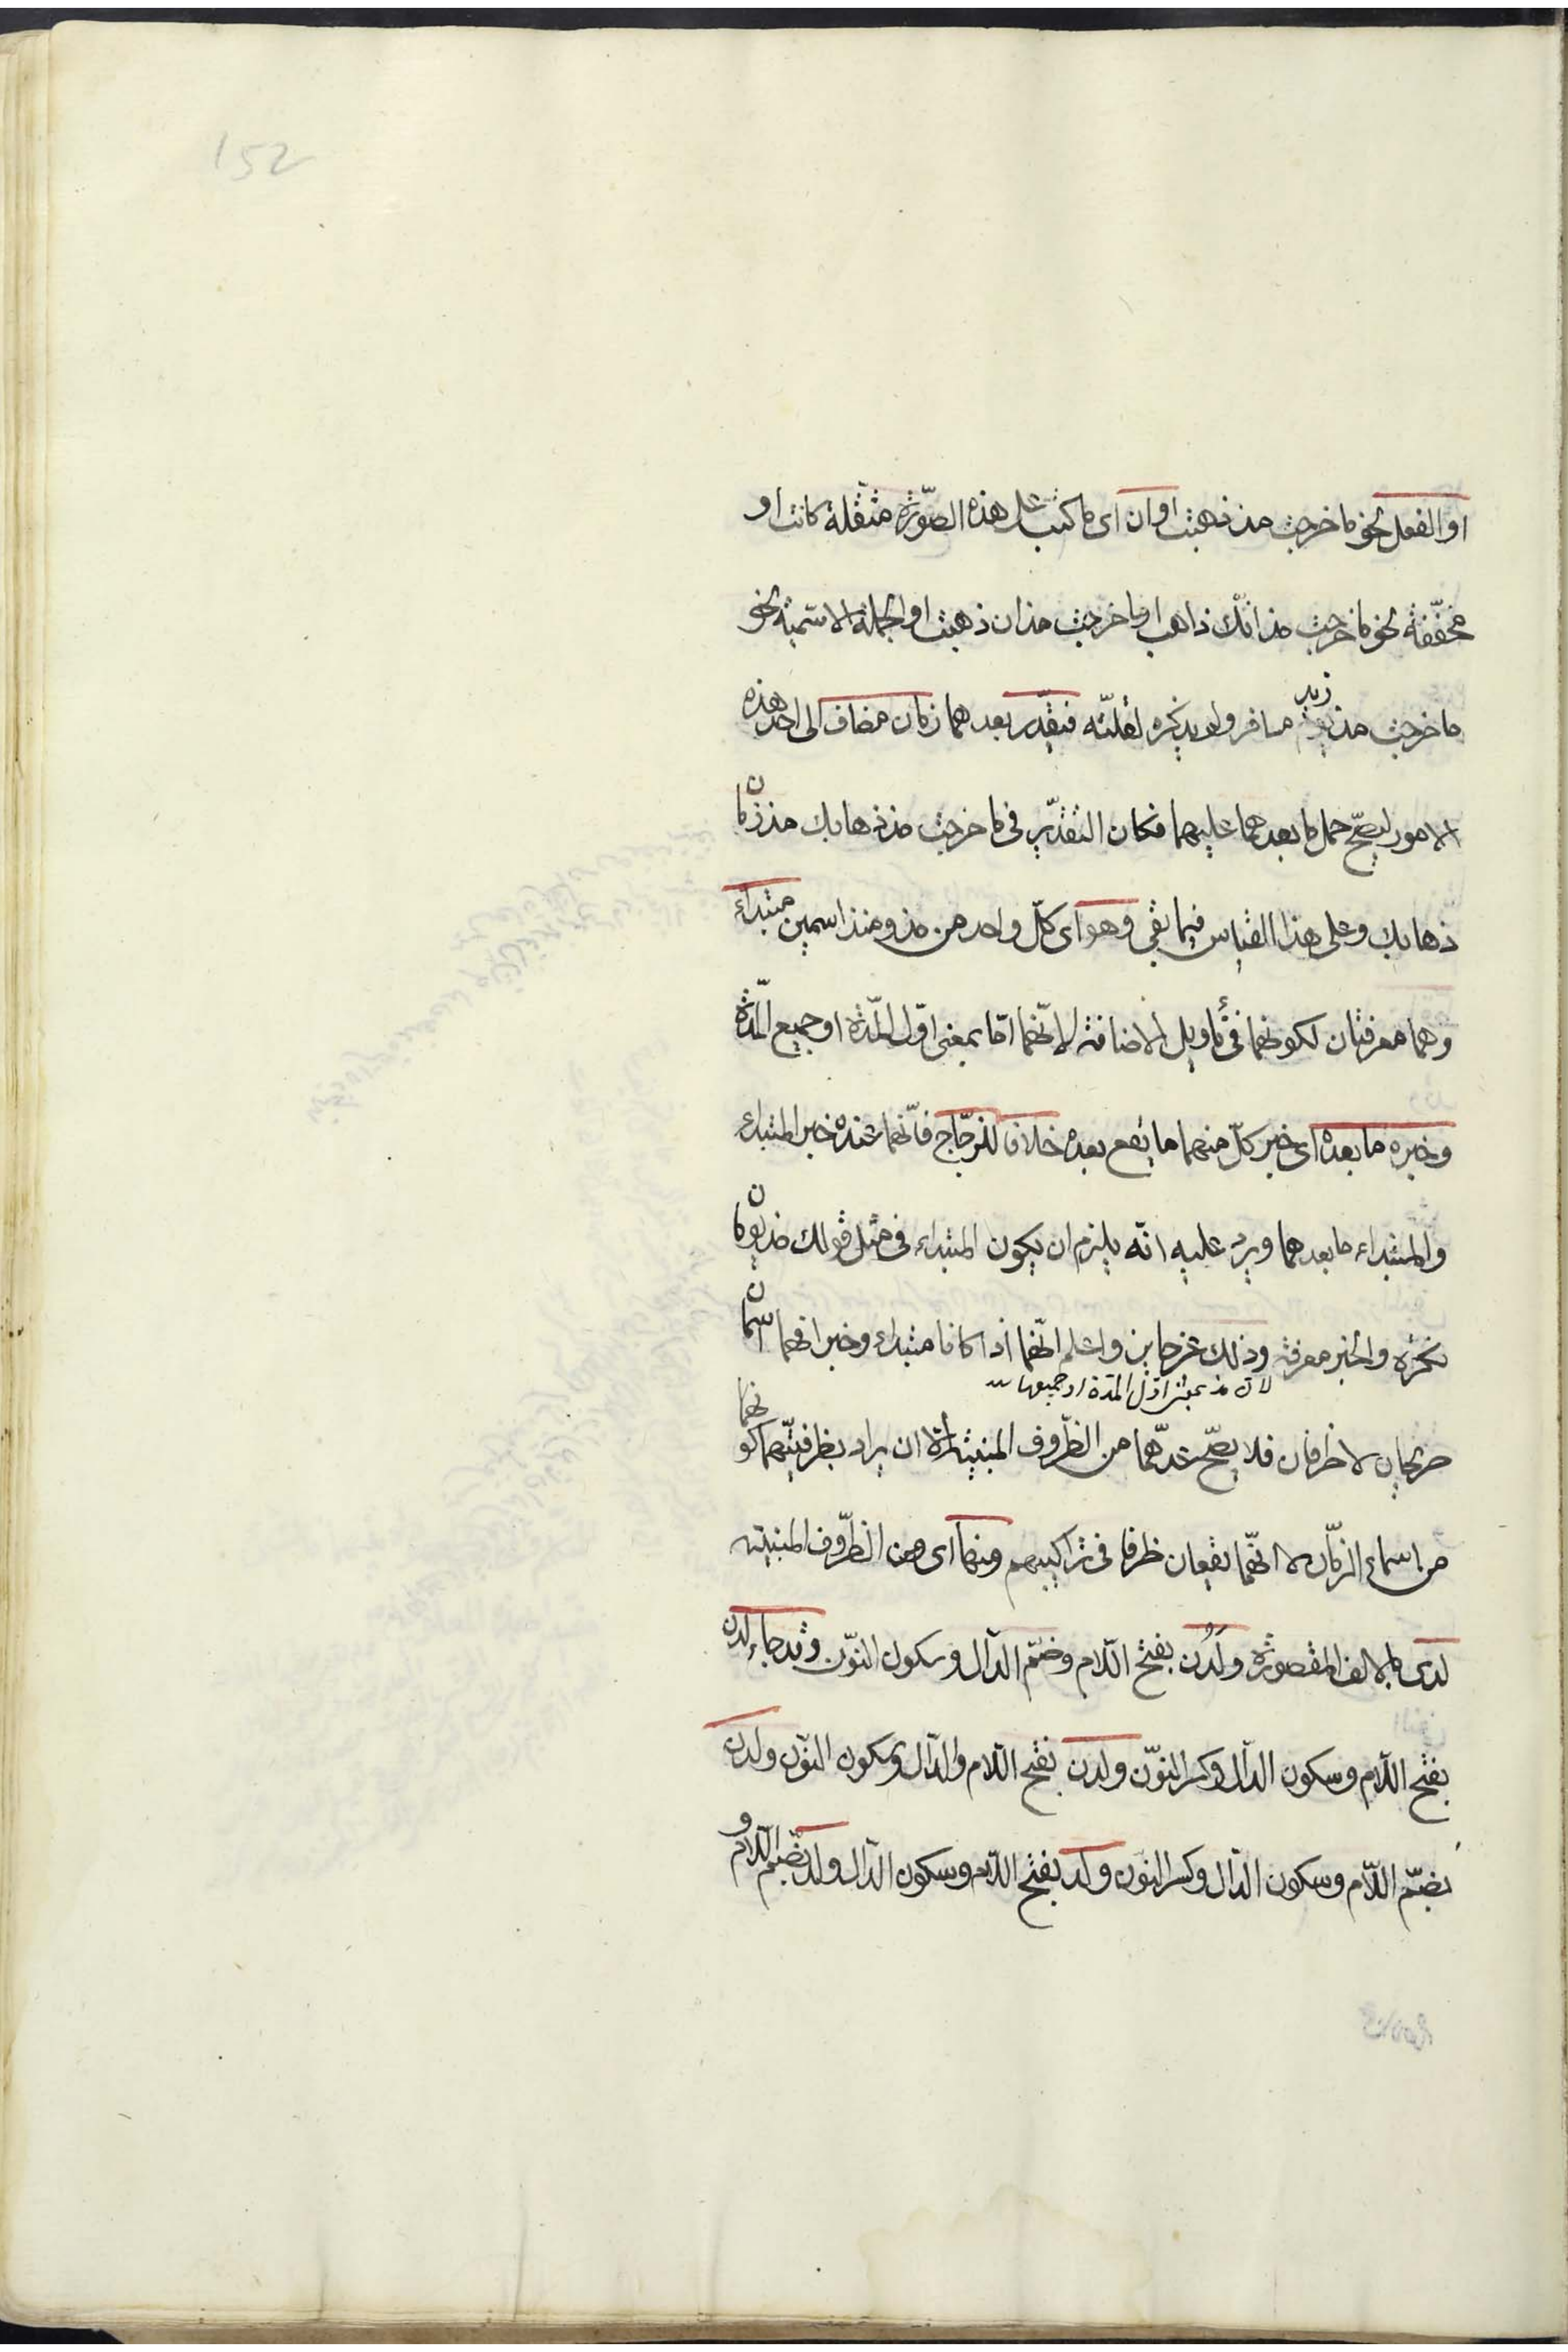 152
او الفعل نحو ما خرجت مذ ذهبت او ان اى ما كتب على هذه الصّورة مثقّلة كانت او
مخفّفة نحو ما خرجت مذ انّك ذاهب او ما خرجت مذ ان ذهبت او الجملة الاسميّة نحو
ما خرجت مذ زيد مسافر ولم يذكره لقلّته فيقدّر بعدهما زمان مضاف الى احد هذه
الامور ليصحّ حمل ما بعدهما عليهما فكان التقدير فى ما خرجت مذ ذهابك مذ زمان
ذهابك وعلى هذا القياس فيما بقى وهو اى كلّ واحد من مذ ومنذ اسمين مبتداء
وهما معرفتان لكونهما فى تأويل الاضافة لانّهما امّا بمعنى اوّل المدّة او جميع المدّة
وخبره ما بعده اى خبر كلّ منهما ما يقع بعده خلافا للزجّاج فانّهما عنده خبر المبتداء
والمبتداء ما بعدهما ويرد عليه انّه يلزم ان يكون المبتداء فى مثل قولك مذ يومان
نكرة والخبر معرفة وذلك غير جايز واعلم انّهما اذا كانا مبتداء وخبرا فهما اسمان
لان مذ بمعنى اوّل المدة او جميعها
صريحان لا ظرفان فلا يصحّ عدّهما من الظّروف المبنيّة الا ان يراد بظرفيّتهما كونهما
من اسماء الزّمان لا انّهما يقعان ظرفا فى تراكيبهم ومنها اى ومن الظّروف المبنيّة
لدى بالالف المقصورة ولَدُن بفتح اللّام وضمّ الدّال وسكون النّون وقد جاء لدن
بفتح اللّام وسكون الدّال وكسر النّون ولدن بفتح اللّام والدّال وسكون النّون ولدن
بضمّ اللّام وسكون الدّال وكسر النّون ولد بفتح اللّام وسكون الدّال ولد بضمّ اللّام و